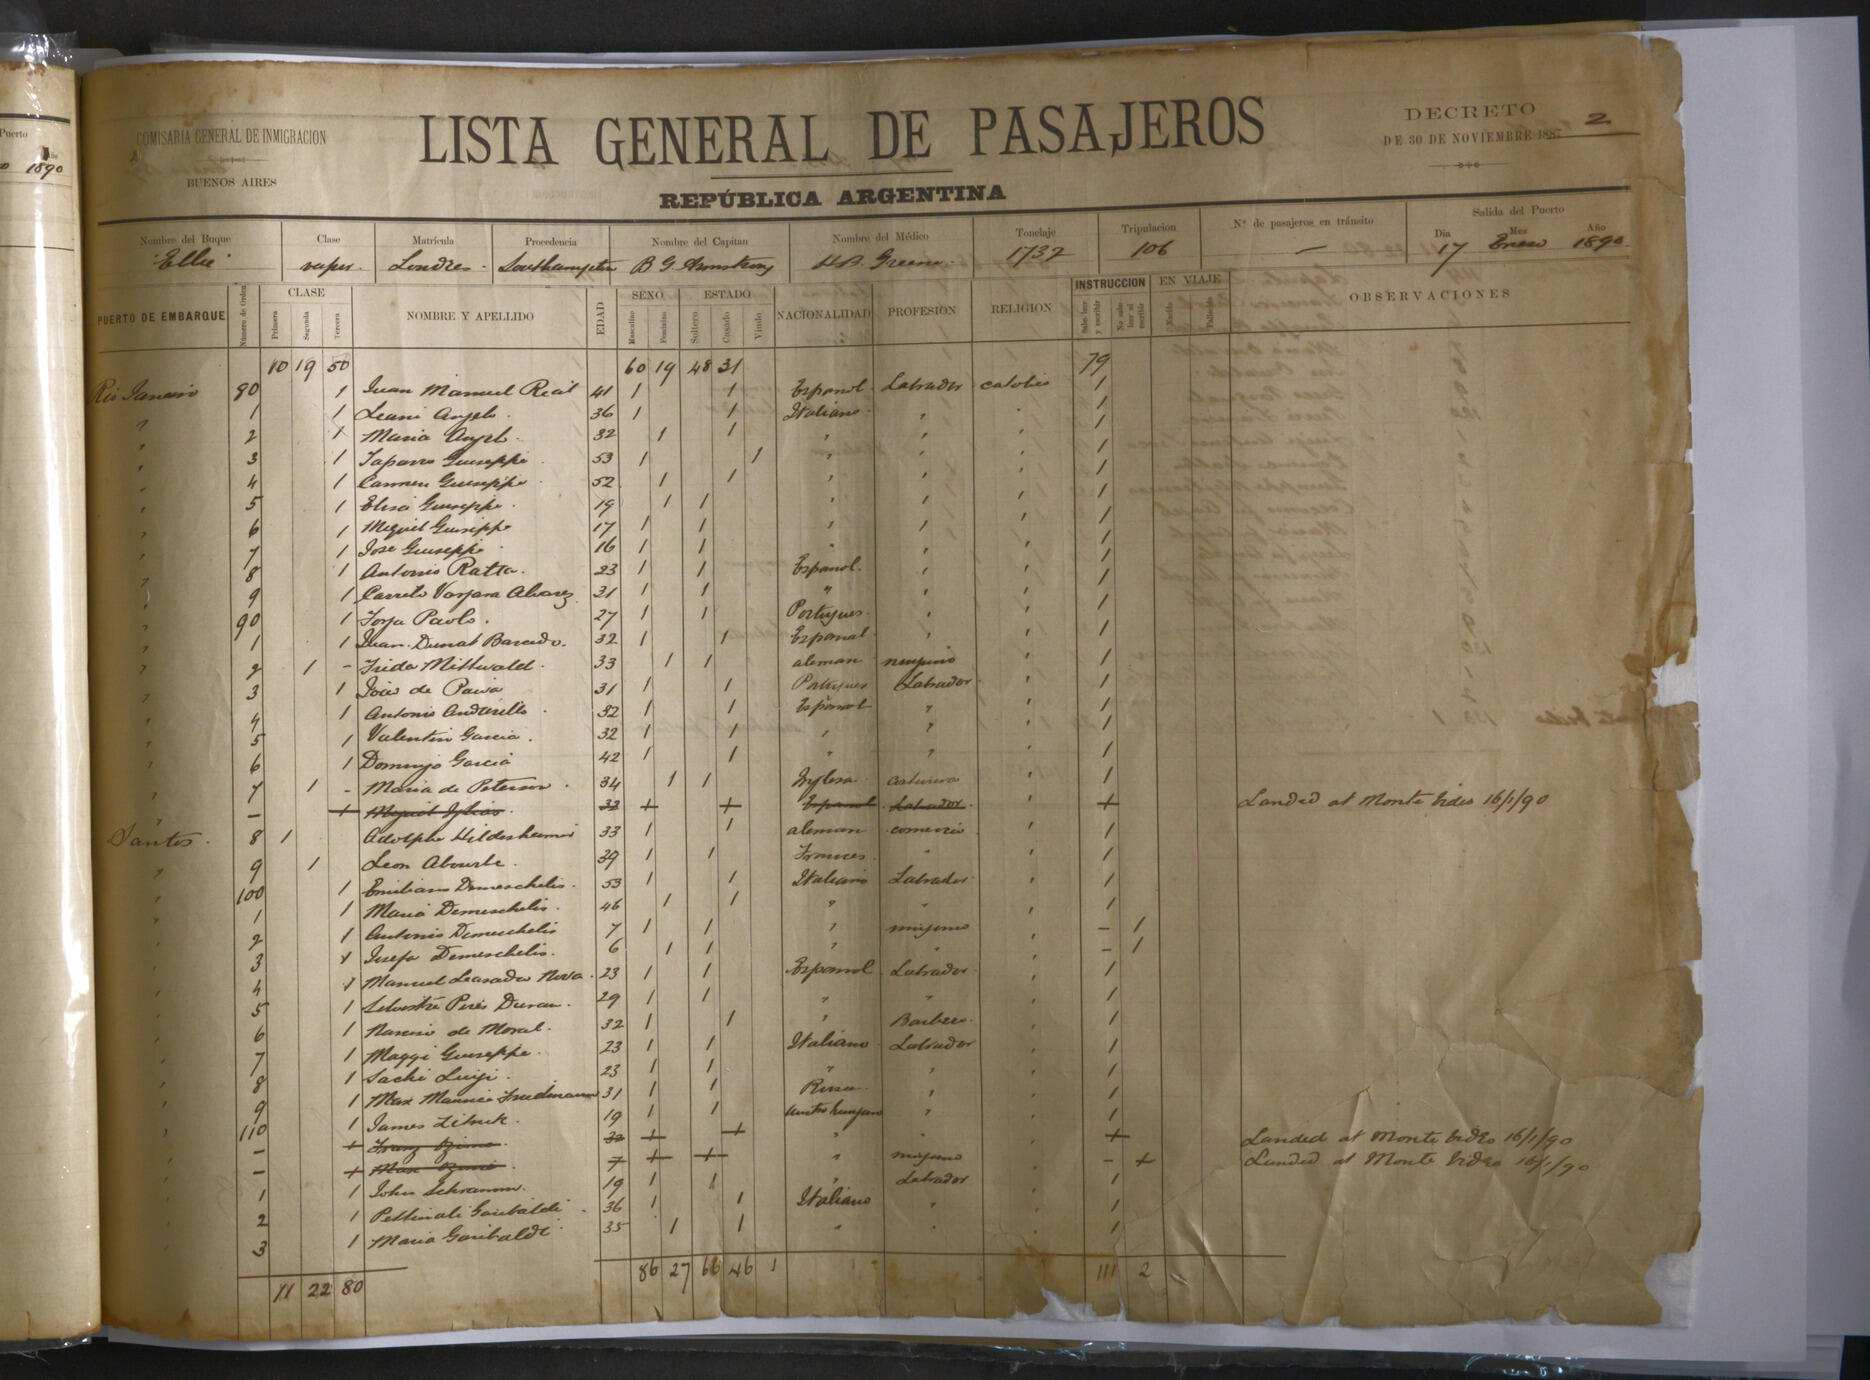 Puerto
Año
1890
COMISARIA GENERAL DE INMIGRACION
BUENOS AIRES
LISTA GENERAL DE PASAJEROS
REPÚBLICA ARGENTINA
DECRETO
DE 30 DE NOVIEMBRE 1887
2
Nombre del Buque Clase Matrícula Procedencia Nombre del Capitan Nombre del Médico Tonelaje Tripulacion Nº de pasajeros en tránsito Salida del Puerto
Dia Mes Año
Elbe vapor Londres Southampton B G Armstrong H B. Greene 1737 106 — 17 Enero 1890
PUERTO DE EMBARQUE Número de Orden CLASE NOMBRE Y APELLIDO EDAD SEXO ESTADO NACIONALIDAD PROFESION RELIGION INSTRUCCION EN VIAJE OBSERVACIONES
Primera Segunda Tercera Masculino Femenino Soltero Casado Viudo Sabe leer y escribir No sabe leer ni escribir Nacido Fallecido
10 19 50 60 19 48 31 79
Rio Janeiro 80 1 Juan Manuel Real 41 1 1 Español Labrador catolico 1
" 1 1 Leani Angelo 36 1 1 Italiano " " 1
" 2 1 Maria Angelo 32 1 1 " " " 1
" 3 1 Giuseppe 53 1 1 " " " 1
" 4 1 Carmen Giuseppe 52 1 1 " " " 1
" 5 1 Elisa Giuseppe 19 1 1 " " " 1
" 6 1 Miguel Giuseppe 17 1 1 " " " 1
" 7 1 Jose Giuseppe 16 1 1 " " " 1
" 8 1 Antonio Ratta 23 1 1 Español " " 1
" 9 1 Alvarez 31 1 1 " " " 1
" 90 1 Paolo 27 1 1 Portugues " " 1
" 1 1 Juan 32 1 1 Español " " 1
" 2 1 - Frida Mittwald 33 1 1 aleman ninguno " 1
" 3 1 de Paiva 31 1 1 Portugues Labrador " 1
" 4 1 Antonio 32 1 1 Español " " 1
" 5 1 Valentin Garcia 32 1 1 " " " 1
" 6 1 Domingo Garcia 42 1 1 " " " 1
" 7 1 - Maria de Peterson 34 1 1 Inglesa costurera " 1
" — 1 Miguel Iglias 32 1 1 Español Labrador " 1 Landed at Monte Video 16/1/90
Santos 8 1 Adolphe Hildesheimer 33 1 1 aleman comercio " 1
" 9 1 Leon 39 1 1 Frances " " 1
" 100 1 Emiliano Demeschelis 53 1 1 Italiano Labrador " 1
" 1 1 Maria Demeschelis 46 1 1 " " " 1
" 2 1 Antonio Demeschelis 7 1 1 " ninguno " - 1
" 3 1 Josefa Demeschelis 6 1 1 " " " - 1
" 4 1 Manuel 23 1 1 Español Labrador " 1
" 5 1 Silvestre Peres Duran 29 1 1 " " " 1
" 6 1 Narciso de Moral 32 1 1 " Barbero " 1
" 7 1 Maggi Giuseppe 23 1 1 Italiano Labrador " 1
" 8 1 Sachi Luigi 23 1 1 " " " 1
" 9 1 Max Friedmann 31 1 1 Rusa " " 1
" 110 1 James 19 1 1 Austro hungaro " " 1
" — 1 Franz 32 1 1 " " " 1 Landed at Monte Video 16/1/90
" — 1 Max 7 1 1 " ninguno " - 1 Landed at Monte Video 16/1/90
" 1 1 John Schramm 19 1 1 " Labrador " 1
" 2 1 Pettinali Garibaldi 36 1 1 Italiano " " 1
" 3 1 Maria Garibaldi 35 1 1 " " " 1
11 22 80 86 27 66 46 1 111 2